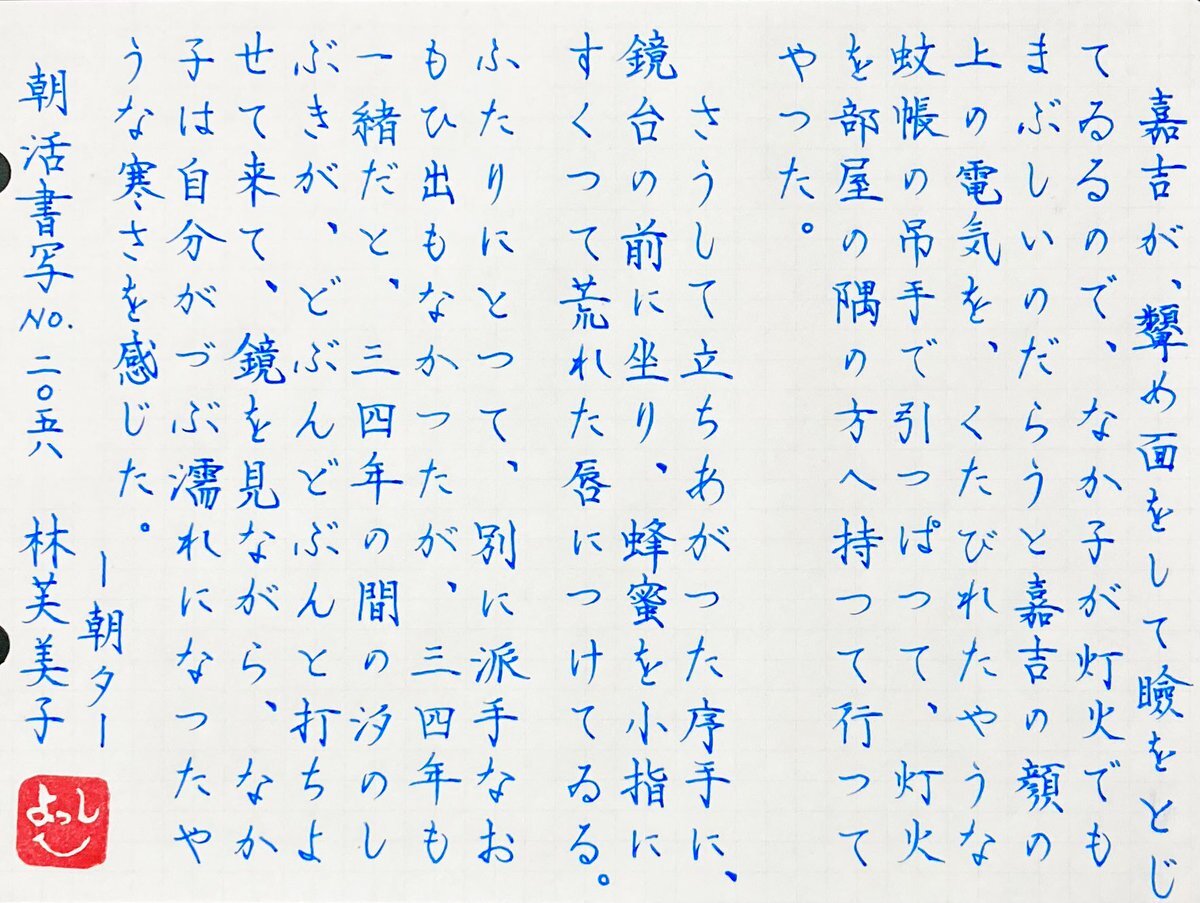 嘉吉が、顰め面をして瞼をとじ
てゐるので、なか子が灯火でも
まぶしいのだらうと嘉吉の顔の
上の電気を、くたびれたやうな
蚊帳の吊手で引っぱつて、灯火
を部屋の隅の方へ持つて行つて
やつた。
さうして立ちあがつた序手に、
鏡台の前に坐り、蜂蜜を小指に
すくつて荒れた唇につけてゐる。
ふたりにとつて、別に派手なお
もひ出もなかつたが、三四年も
一緒だと、三四年の間の汐のし
ぶきが、どぶんどぶんと打ちよ
せて来て、鏡を見ながら、なか
子は自分がづぶ濡れになつたや
うな寒さを感じた。
ー朝夕ー
朝活書写No.二〇五八 林芙美子
よっし